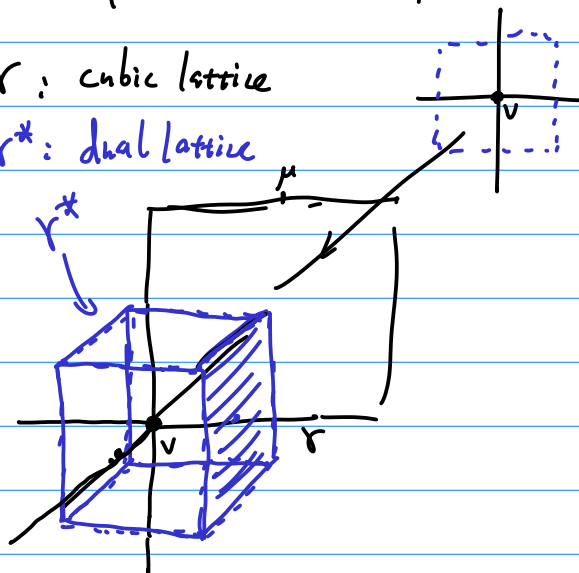 r: cubic lattice
v
r*: dual lattice
μ
r*
v
r